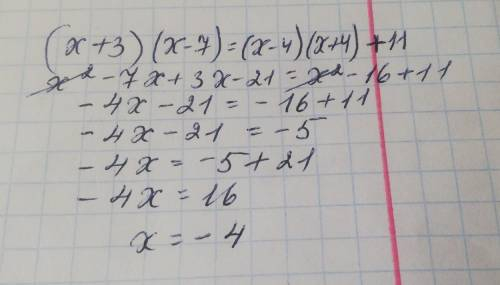 (x+3)(x-7)=(x-4)(x+4)+11
x²-7x+3x-21=x²-16+11
-4x-21=-16+11
-4x-21=-5
-4x=-5+21
-4x=16
x=-4